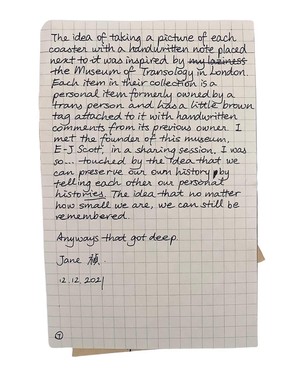 The idea of taking a picture of each
coaster with a handwritten note placed
next to it was inspired by my laziness
the Museum of Transology in London.
Each item in their collection is a
personal item formerly owned by a
trans person and has a little brown
tag attached to it with handwritten
comments from its previous owner. I
met the founder of this museum,
E-J Scott, in a sharing session. I was
so... touched by the idea that we
can preserve our own history by
telling each other our personal
histories. The idea that no matter
how small we are, we can still be
remembered.
Anyways that got deep
Jane
12.12.2021